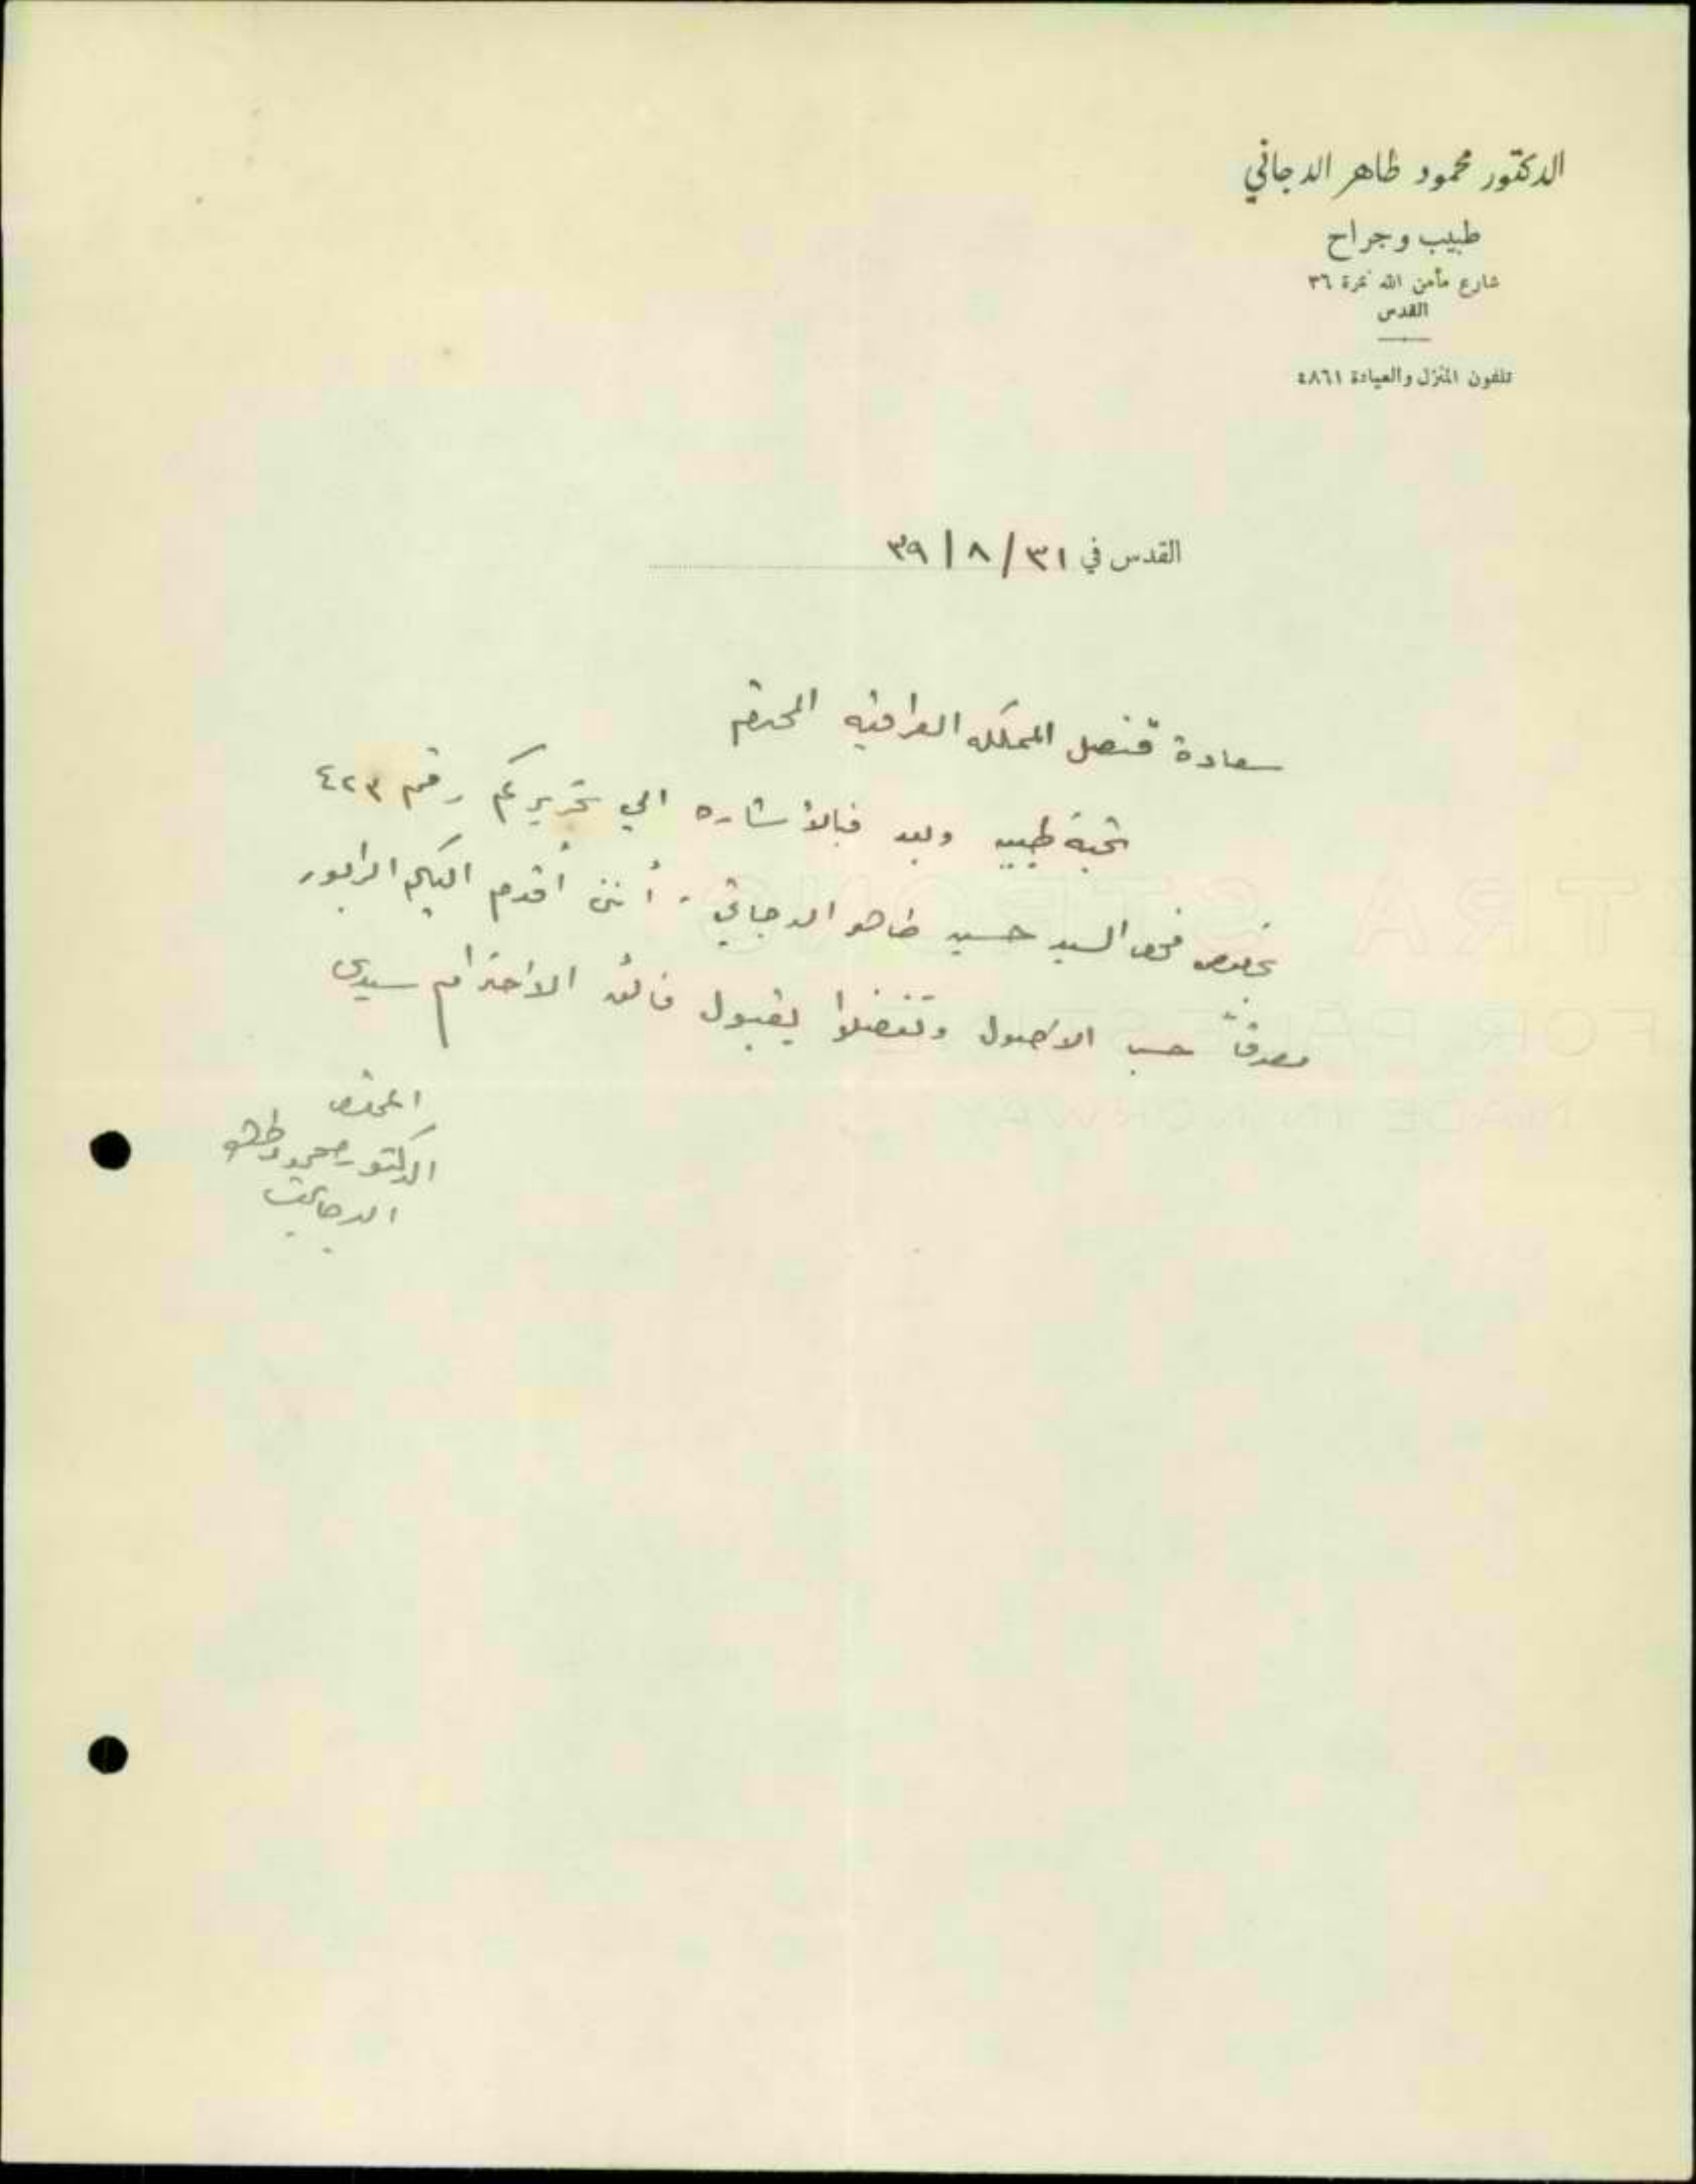 الدكتور محمود طاهر الدجاني
طبيب وجراح
شارع مأمن الله نمرة ٣٦
القدس
تلفون المنزل والعيادة ٤٨٦١
القدس في ٣١/٨/٣٩
سعادة قنصل المملكه العراقيه المحترم
تحية طيبه وبعد فبالأشاره الي تحريركم رقم ٤٢٣
بخصوص فحص السيد حسين طاهر الدجاني . أنني أقدم اليكم الرابور
مصدقاً حسب الاصول وتفضلوا بقبول فائق الاحترام سيدي
المخلص
الدكتور محمود طاهر
الدجاني